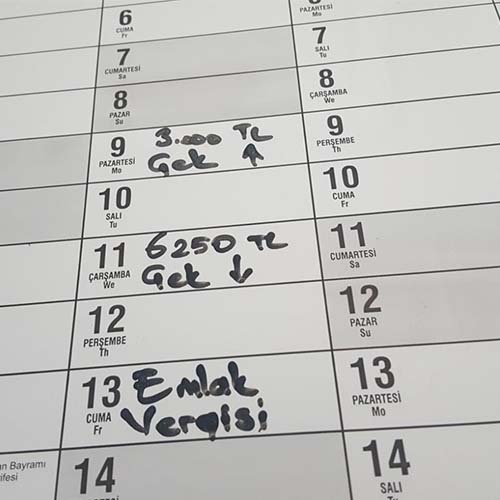 6
CUMA
Fr
7
CUMARTESİ
Sa
8
PAZAR
Su
9
PAZARTESİ
Mo
3.000 TL
Çek ↑
10
SALI
Tu
11
ÇARŞAMBA
We
6250 TL
Çek ↓
12
PERŞEMBE
Th
13
CUMA
Fr
Emlak
Vergisi
14
PAZARTESİ
Mo
7
SALI
Tu
8
ÇARŞAMBA
We
9
PERŞEMBE
Th
10
CUMA
Fr
11
CUMARTESİ
Sa
12
PAZAR
Su
13
PAZARTESİ
Mo
14
SALI
Tu
an Bayramı
ifesi